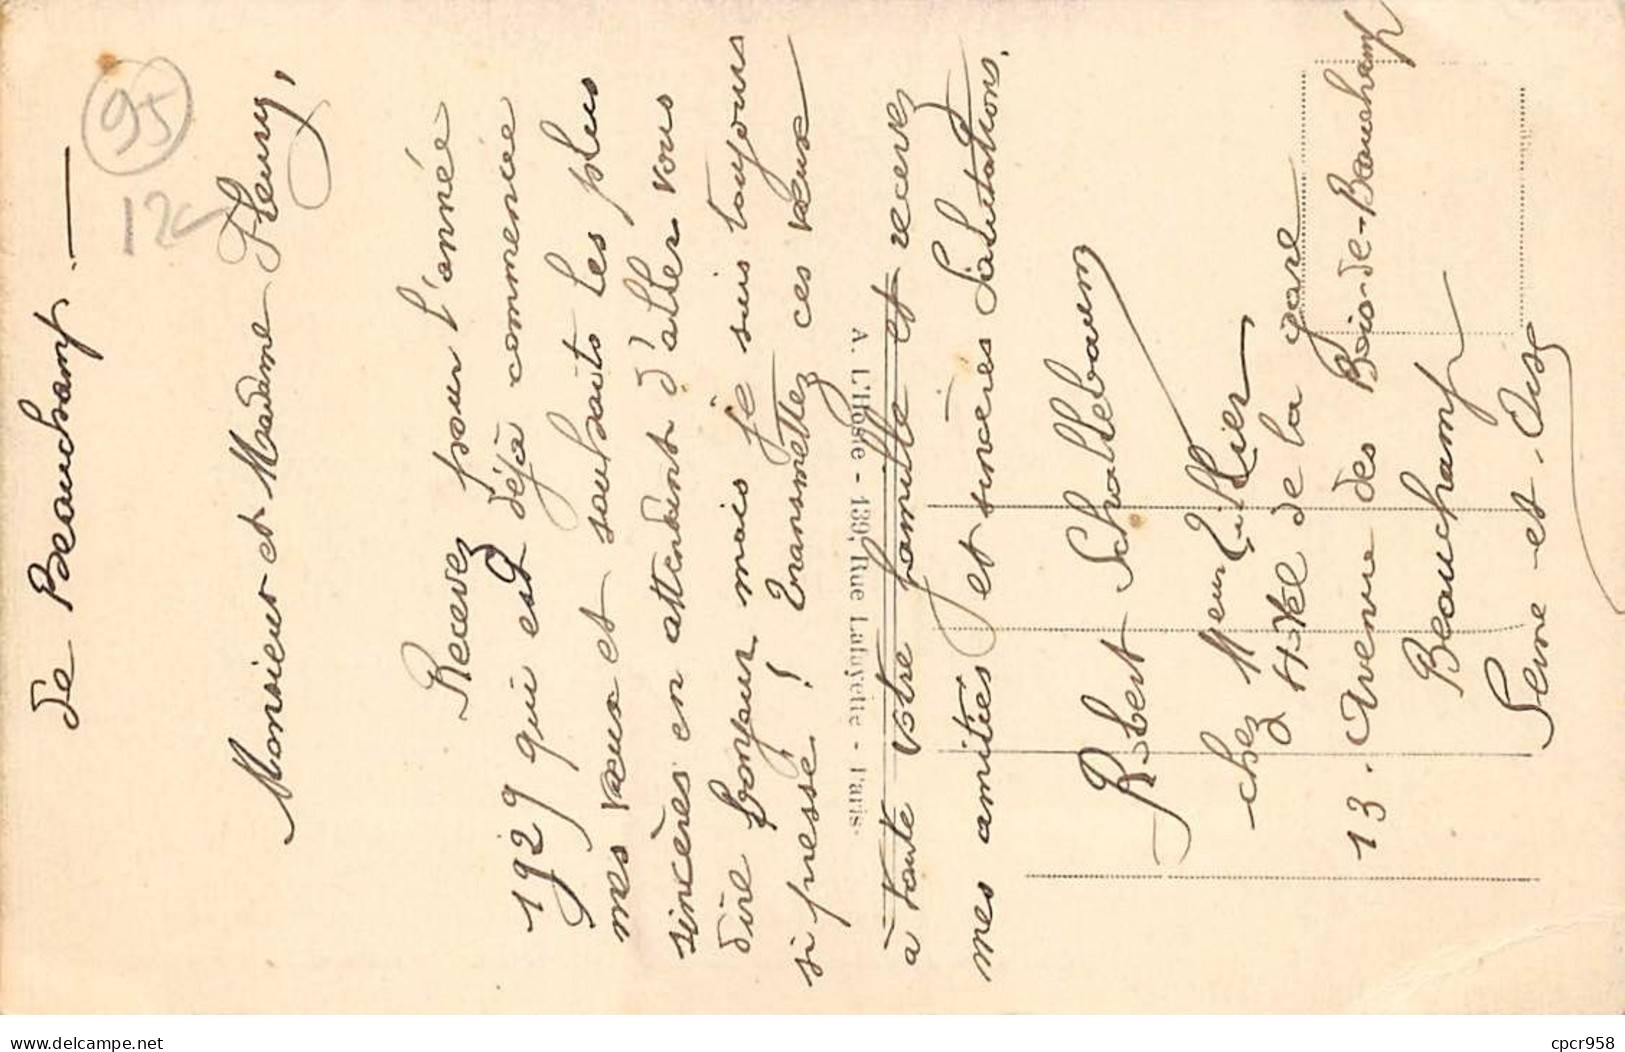 de Beauchamp.—
95
12
Monsieur et Madame Fleury,
Recevez pour l'année
1929 qui est déjà commencée
mes vœux et souhaits les plus
sincères en attendant d'aller vous
dire bonjour mais je suis toujours
si pressé ! Transmettez ces vœux
à toute votre famille et recevez
mes amitiés et sincères Salutations.
A. L'Hoste - 139, Rue Lafayette - Paris.
Robert Schattebaum
chez Meur Litlier
Hôtel de la gare
13. Avenue des Bois-de-Beauchamp
Beauchamp
Seine-et-Oise
delcampe.net
cpcr958